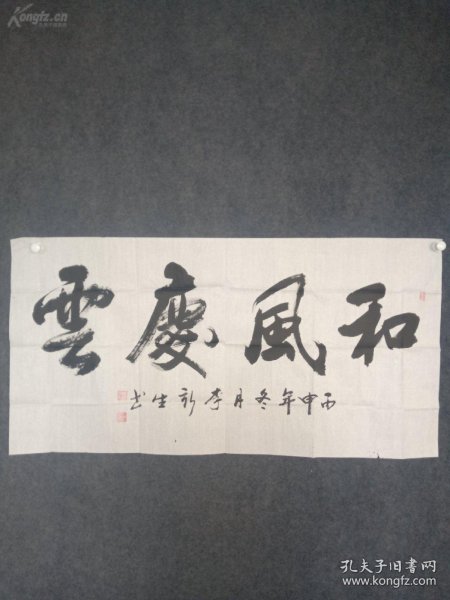 Kongfz.cn
和風慶雲
丙申年冬月李新生书
孔夫子旧书网
www.kongfz.com